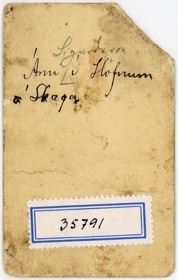 Sigurdsson
Árni í Höfnum
á Skaga
35791